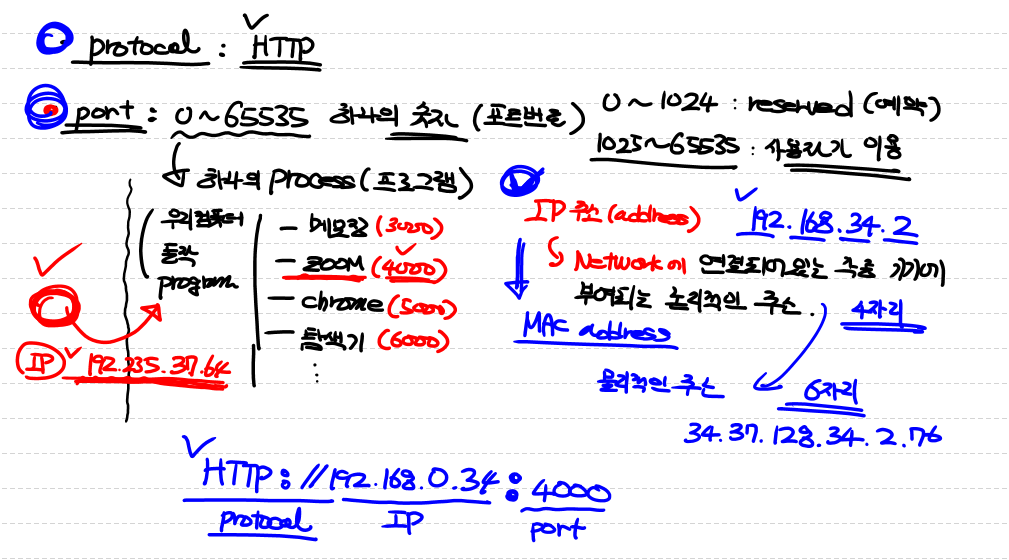 protocol : HTTP
port : 0~65535 하나의 숫자 (포트번호)
0 ~ 1024 : reserved (예약)
1025~65535 : 사용자가 이용
하나의 Process (프로그램)
우리컴퓨터
동작
program
- 메모장 (3000)
- ZOOM (4000)
- chrome (5000)
- 탐색기 (6000)
⋮
IP 192.235.37.64
IP 주소 (address) 192.168.34.2
Network에 연결되어있는 각종 기기에
부여되는 논리적인 주소. 4자리
MAC address
물리적인 주소 6자리
34.37.128.34.2.76
HTTP://192.168.0.34:4000
protocol IP port